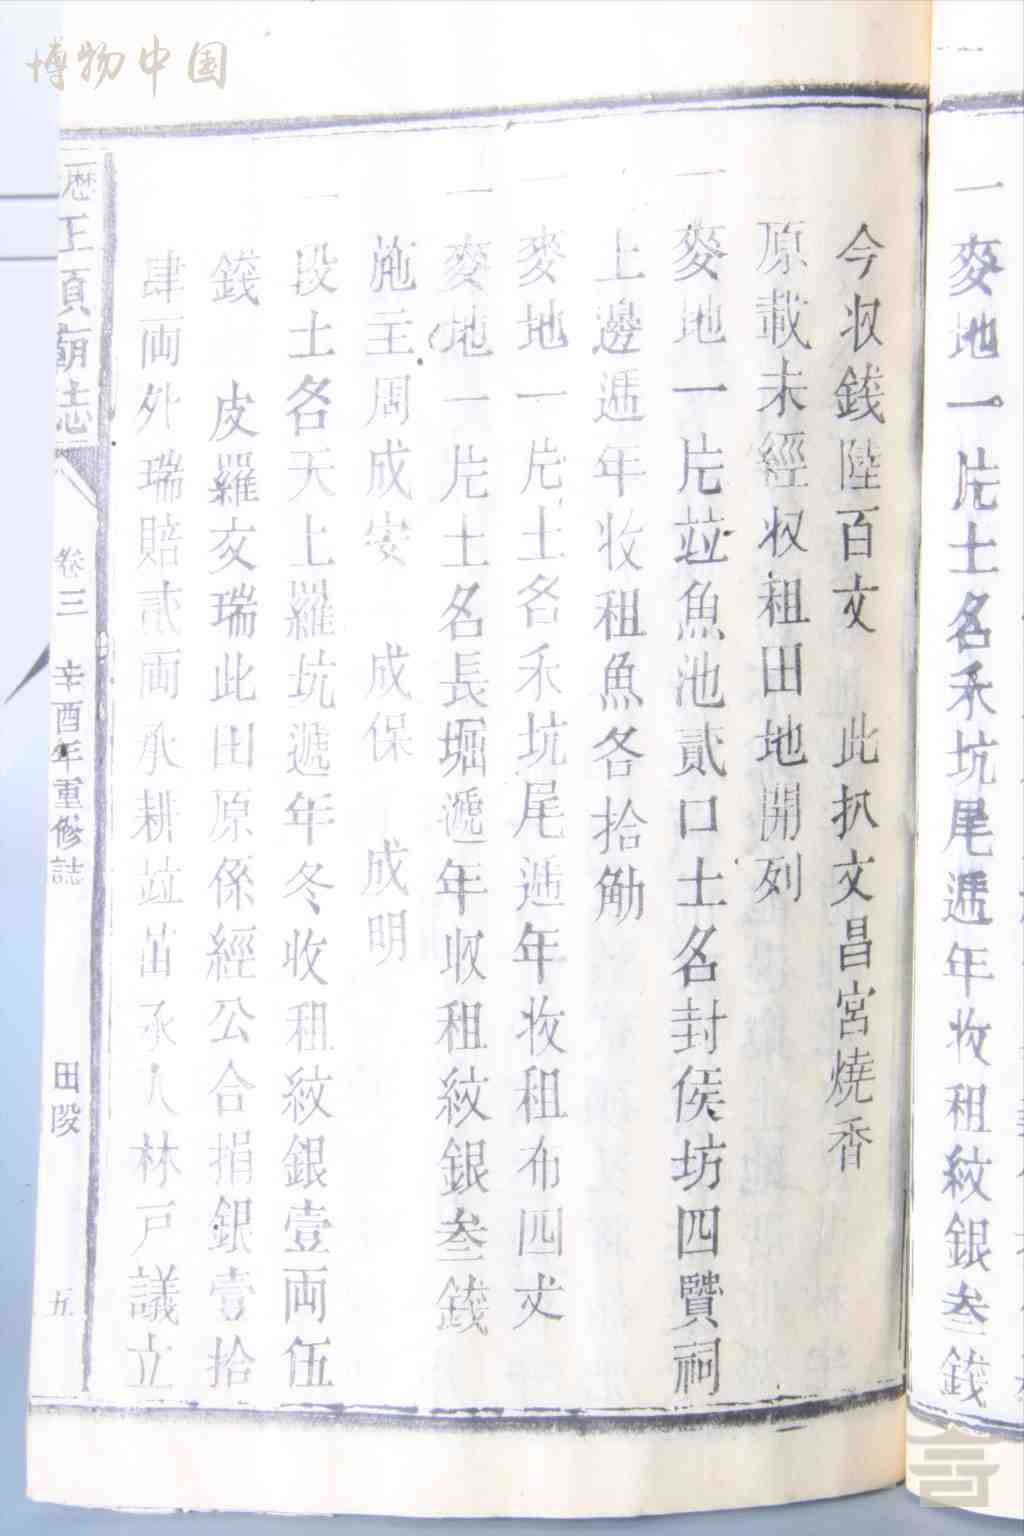 博物中国
一麥地一片土名禾坑尾遞年收租紋銀叁錢
今収錢陸百文 此扒文昌宮燒香
原載未經収租田地開列
一麥地一片竝魚池貳口土名封侯坊四賢祠
上邊遞年收租魚各拾觔
一麥地一片土名禾坑尾遞年收租布四丈
一麥地一片土名長堀遞年収租紋銀叁錢
施主周成安 成保 成明
一段土名天上羅坑遞年冬收租紋銀壹両伍
錢 皮羅文瑞此田原係經公合捐銀壹拾
肆両外瑞賠貳両承耕竝茁承人林戸議立
歷王頂廟志 卷三 辛酉年重修誌 田段 五